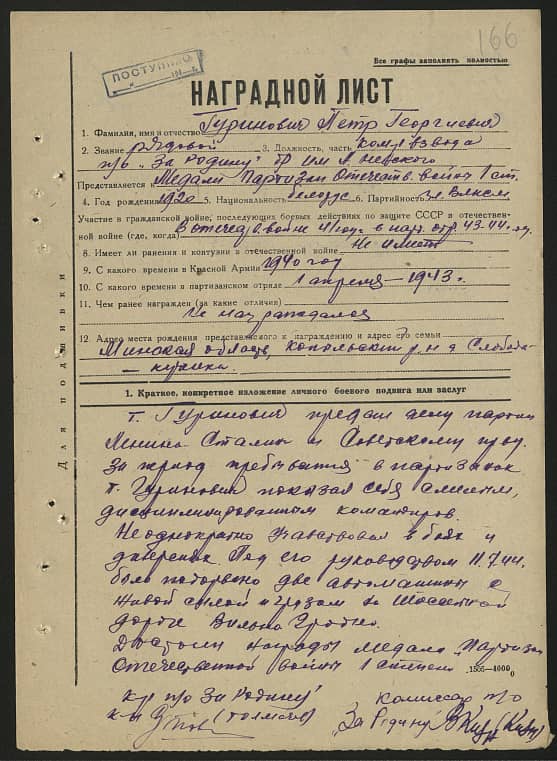 166
Все графы заполнять полностью
ПОСТУПИЛО
НАГРАДНОЙ ЛИСТ
1. Фамилия, имя и отчество Гуринович Петр Георгиевич
2. Звание рядовой 3. Должность, часть ком-р взвода
п/о "За Родину" бр им А Невского
Представляется к Медали Партизан Отечеств. войны 1 ст.
4. Год рождения 1920 5. Национальность белорус 6. Партийность чл. ВЛКСМ
Участие в гражданской войне, последующих боевых действиях по защите СССР и отечествен-
ной войне (где, когда) В отечеств. войне 41 году в парт. отр 43-44
8. Имеет ли ранения и контузии в отечественной войне Не имеет
9. С какого времени в Красной Армии 1940 год
10. С какого времени в партизанском отряде 1 апреля - 1943 г.
11. Чем ранее награжден (за какие отличия)
Не награждался
12. Адрес места рождения представляемого к награждению и адрес его семьи
Минская область, Копыльский р-н д Слобода-
- кучинка
Для подшивки
1. Краткое, конкретное изложение личного боевого подвига или заслуг
т. Гуринович предан делу партии
Ленина-Сталина и Советскому
За период пребывания в партизанах
т. Гуринович показал себя смелым,
дисциплинированным командиром.
Неоднократно участвовал в боях и
диверсиях. Под его руководством 11.7.44.
было подорвано две автомашины с
живой силой и грузом на шоссейной
дороге Вильно Гродно.
Достоин награды медали "Партизан
Отечественной войны 1 степени
1566—4000
к-р п/о За Родину"
комиссар п/о
к-н (Толмачев)
"За Родину"